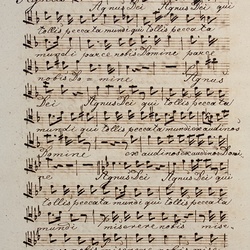 Agnus Dei Agnus Dei qui
tollis peccata mundi qui tollis peccata
mundi parce nobis Domine parce
nobis Do = mine Agnus
Dei Agnus Dei qui tollis peccata
mundi qui tollis peccata mundi exaudi nos
Domine exaudi nos exaudi nos Domi
ne Agnus Dei Agnus Dei qui
tollis peccata mundi qui tollis peccata
mundi miserere nobis mise